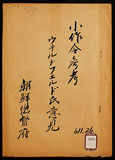 小作令参考
ウオルトフエルド氏意見
朝鮮総督府
611.26